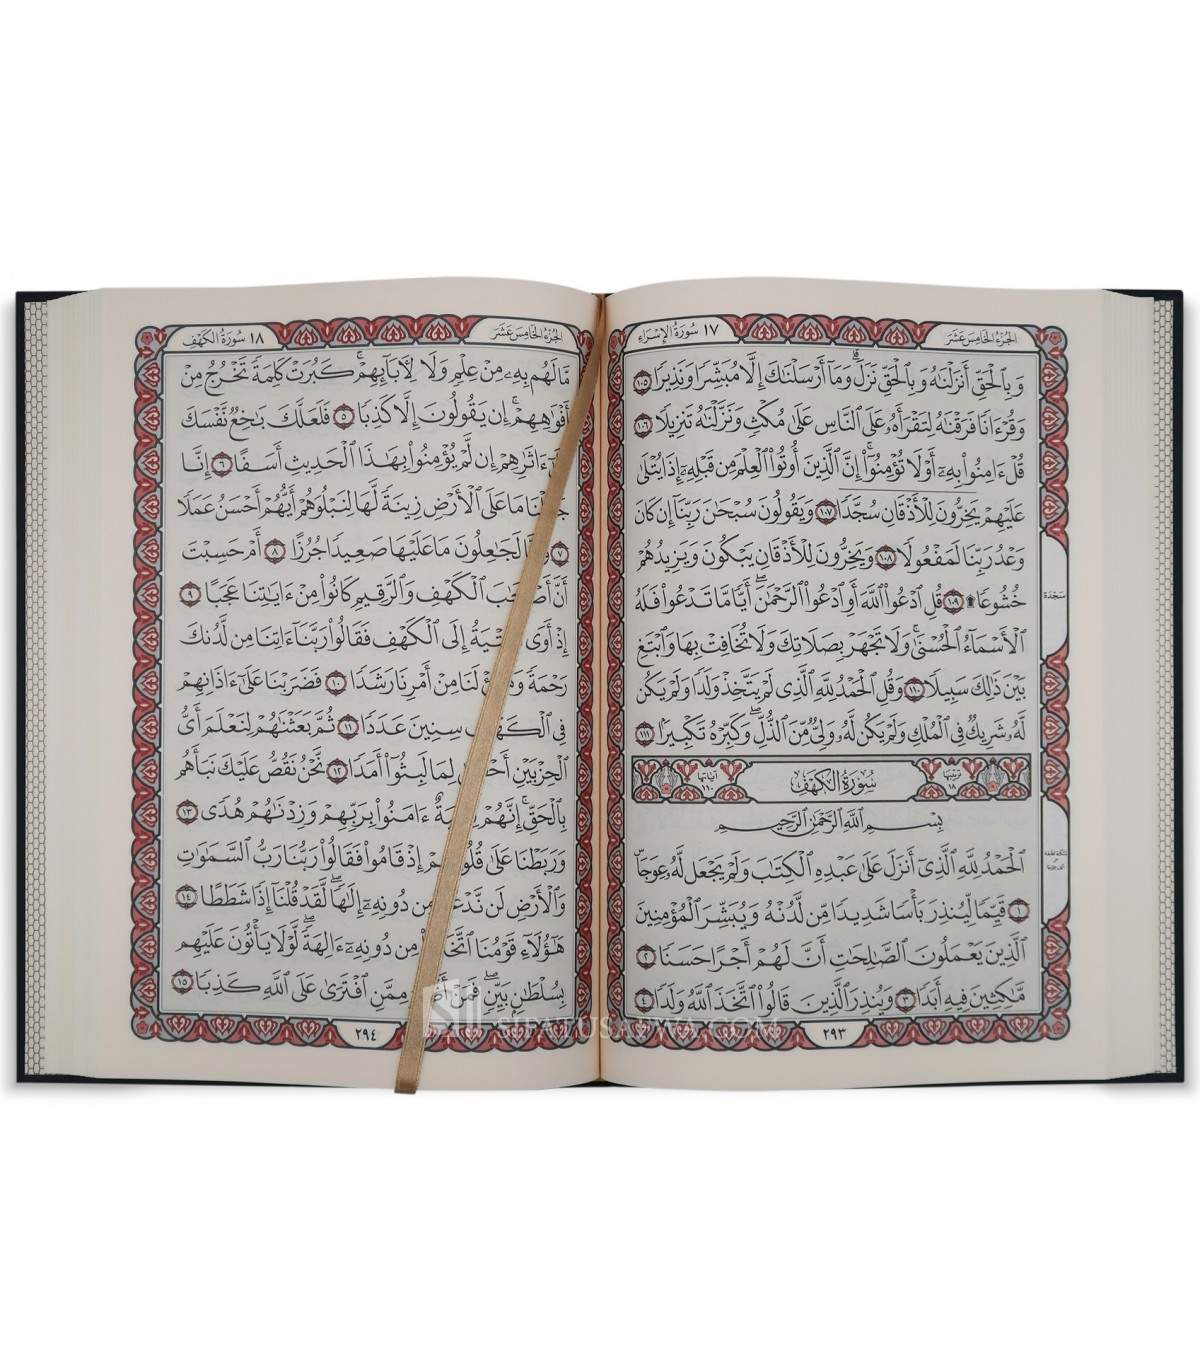 الجزء الخامس عشر
١٧ سورة الإسراء
وَبِٱلْحَقِّ أَنزَلْنَٰهُ وَبِٱلْحَقِّ نَزَلَ ۗ وَمَآ أَرْسَلْنَٰكَ إِلَّا مُبَشِّرًا وَنَذِيرًا ١٠٥
وَقُرْءَانًا فَرَقْنَٰهُ لِتَقْرَأَهُۥ عَلَى ٱلنَّاسِ عَلَىٰ مُكْثٍ وَنَزَّلْنَٰهُ تَنزِيلًا ١٠٦
قُلْ ءَامِنُوا۟ بِهِۦٓ أَوْ لَا تُؤْمِنُوٓا۟ ۚ إِنَّ ٱلَّذِينَ أُوتُوا۟ ٱلْعِلْمَ مِن قَبْلِهِۦٓ إِذَا يُتْلَىٰ
عَلَيْهِمْ يَخِرُّونَ لِلْأَذْقَانِ سُجَّدًا ١٠٧ وَيَقُولُونَ سُبْحَٰنَ رَبِّنَآ إِن كَانَ
وَعْدُ رَبِّنَا لَمَفْعُولًا ١٠٨ وَيَخِرُّونَ لِلْأَذْقَانِ يَبْكُونَ وَيَزِيدُهُمْ
خُشُوعًا ۩ ١٠٩ قُلِ ٱدْعُوا۟ ٱللَّهَ أَوِ ٱدْعُوا۟ ٱلرَّحْمَٰنَ ۖ أَيًّا مَّا تَدْعُوا۟ فَلَهُ
سجدة
ٱلْأَسْمَآءُ ٱلْحُسْنَىٰ ۚ وَلَا تَجْهَرْ بِصَلَاتِكَ وَلَا تُخَافِتْ بِهَا وَٱبْتَغِ
بَيْنَ ذَٰلِكَ سَبِيلًا ١١٠ وَقُلِ ٱلْحَمْدُ لِلَّهِ ٱلَّذِى لَمْ يَتَّخِذْ وَلَدًا وَلَمْ يَكُن
لَّهُۥ شَرِيكٌ فِى ٱلْمُلْكِ وَلَمْ يَكُن لَّهُۥ وَلِىٌّ مِّنَ ٱلذُّلِّ ۖ وَكَبِّرْهُ تَكْبِيرًۢا ١١١
ترتيبها ١٨
سُورَةُ الكَهْفِ
آياتها ١١٠
بِسْمِ ٱللَّهِ ٱلرَّحْمَٰنِ ٱلرَّحِيمِ
ٱلْحَمْدُ لِلَّهِ ٱلَّذِىٓ أَنزَلَ عَلَىٰ عَبْدِهِ ٱلْكِتَٰبَ وَلَمْ يَجْعَل لَّهُۥ عِوَجَا ۜ
١ قَيِّمًا لِّيُنذِرَ بَأْسًا شَدِيدًا مِّن لَّدُنْهُ وَيُبَشِّرَ ٱلْمُؤْمِنِينَ
ٱلَّذِينَ يَعْمَلُونَ ٱلصَّٰلِحَٰتِ أَنَّ لَهُمْ أَجْرًا حَسَنًا ٢
مَّٰكِثِينَ فِيهِ أَبَدًا ٣ وَيُنذِرَ ٱلَّذِينَ قَالُوا۟ ٱتَّخَذَ ٱللَّهُ وَلَدًا ٤
٢٩٣
الجزء الخامس عشر
١٨ سورة الكهف
مَّا لَهُم بِهِۦ مِنْ عِلْمٍ وَلَا لِءَابَآئِهِمْ ۚ كَبُرَتْ كَلِمَةً تَخْرُجُ مِنْ
أَفْوَٰهِهِمْ ۚ إِن يَقُولُونَ إِلَّا كَذِبًا ٥ فَلَعَلَّكَ بَٰخِعٌ نَّفْسَكَ
ءَاثَٰرِهِمْ إِن لَّمْ يُؤْمِنُوا۟ بِهَٰذَا ٱلْحَدِيثِ أَسَفًا ٦ إِنَّا
جَعَلْنَا مَا عَلَى ٱلْأَرْضِ زِينَةً لَّهَا لِنَبْلُوَهُمْ أَيُّهُمْ أَحْسَنُ عَمَلًا
٧ وَإِنَّا لَجَٰعِلُونَ مَا عَلَيْهَا صَعِيدًا جُرُزًا ٨ أَمْ حَسِبْتَ
أَنَّ أَصْحَٰبَ ٱلْكَهْفِ وَٱلرَّقِيمِ كَانُوا۟ مِنْ ءَايَٰتِنَا عَجَبًا ٩
إِذْ أَوَى ٱلْفِتْيَةُ إِلَى ٱلْكَهْفِ فَقَالُوا۟ رَبَّنَآ ءَاتِنَا مِن لَّدُنكَ
رَحْمَةً لَنَا مِنْ أَمْرِنَا رَشَدًا ١٠ فَضَرَبْنَا عَلَىٰٓ ءَاذَانِهِمْ
فِى ٱلْكَهْفِ سِنِينَ عَدَدًا ١١ ثُمَّ بَعَثْنَٰهُمْ لِنَعْلَمَ أَىُّ
ٱلْحِزْبَيْنِ أَحْصَىٰ لِمَا لَبِثُوٓا۟ أَمَدًا ١٢ نَّحْنُ نَقُصُّ عَلَيْكَ نَبَأَهُم
بِٱلْحَقِّ ۚ إِنَّهُمْ فِتْيَةٌ ءَامَنُوا۟ بِرَبِّهِمْ وَزِدْنَٰهُمْ هُدًى ١٣
وَرَبَطْنَا عَلَىٰ قُلُوبِهِمْ إِذْ قَامُوا۟ فَقَالُوا۟ رَبُّنَا رَبُّ ٱلسَّمَٰوَٰتِ
وَٱلْأَرْضِ لَن نَّدْعُوَا۟ مِن دُونِهِۦٓ إِلَٰهًا ۖ لَّقَدْ قُلْنَآ إِذًا شَطَطًا ١٤
هَٰٓؤُلَآءِ قَوْمُنَا ٱتَّخَذُوا۟ مِن دُونِهِۦٓ ءَالِهَةً ۖ لَّوْلَا يَأْتُونَ عَلَيْهِم
بِسُلْطَٰنٍۭ بَيِّنٍ ۖ فَمَنْ أَظْلَمُ مِمَّنِ ٱفْتَرَىٰ عَلَى ٱللَّهِ كَذِبًا ١٥
٢٩٤
SIFATUSAFWA.COM